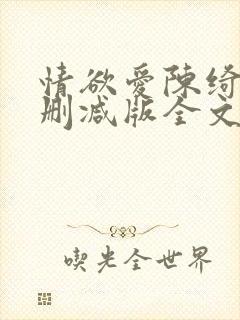 情欲爱陈绮
删减版全文
喫光全世界